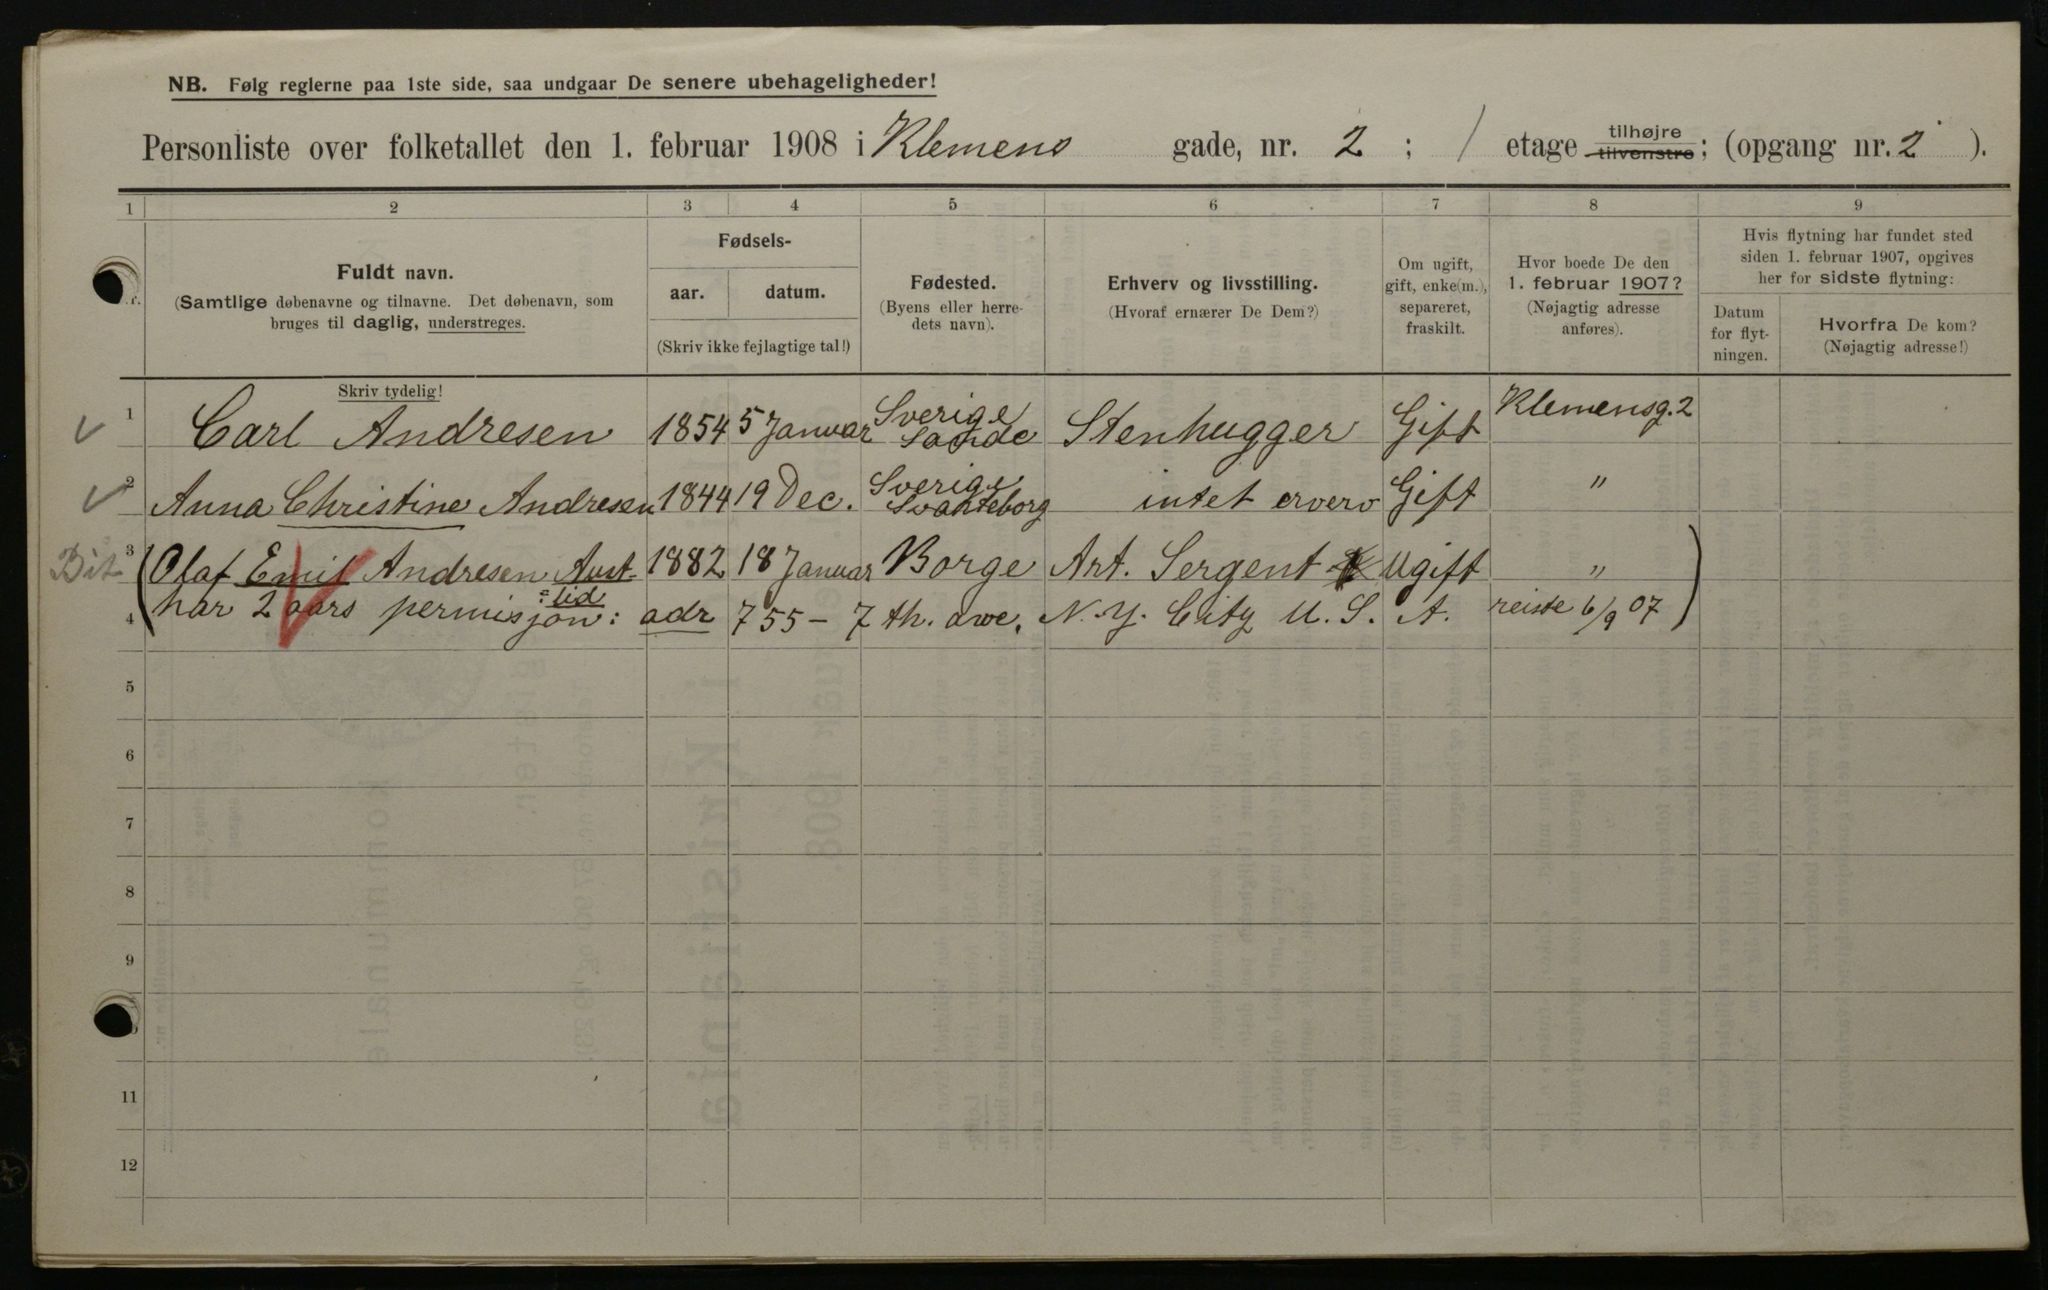 NB. Følg reglerne paa 1ste side, saa undgaar De senere ubehageligheder!
Personliste over folketallet den 1. februar 1908 i Klemens gade, nr. 2; 1 etage tilhøjre tilvenstre; (opgang nr. 2).
1 2 3 4 5 6 7 8 9
Fuldt navn.
(Samtlige døbenavne og tilnavne. Det døbenavn, som
bruges til daglig, understreges.
Skriv tydelig!
Fødsels-
aar. datum.
(Skriv ikke fejlagtige tal!)
Fødested.
(Byens eller herre-
dets navn).
Erhverv og livsstilling.
(Hvoraf ernærer De Dem?)
Om ugift,
gift, enke(m.),
separeret,
fraskilt.
Hvor boede De den
1. februar 1907?
(Nøjagtig adresse
anføres).
Hvis flytning har fundet sted
siden 1. februar 1907, opgives
her for sidste flytning:
Datum
for flyt-
ningen.
Hvorfra De kom?
(Nøjagtig adresse!)
1 Carl Andresen 1854 5 Januar Sverige Stenhugger Gift Klemensg. 2
2 Anna Christine Andresen 1844 19 Dec. Sverige Svarteborg intet erverv Gift "
3 (Olaf Emil Andresen Aust- 1882 18 Januar Borge Art. Sergent Ugift "
lid
4 har 2 aars permisjon: adr 755 - 7 th. awe. N.Y. City U.S.A. reiste 6/9 07)
5
6
7
8
9
11
12